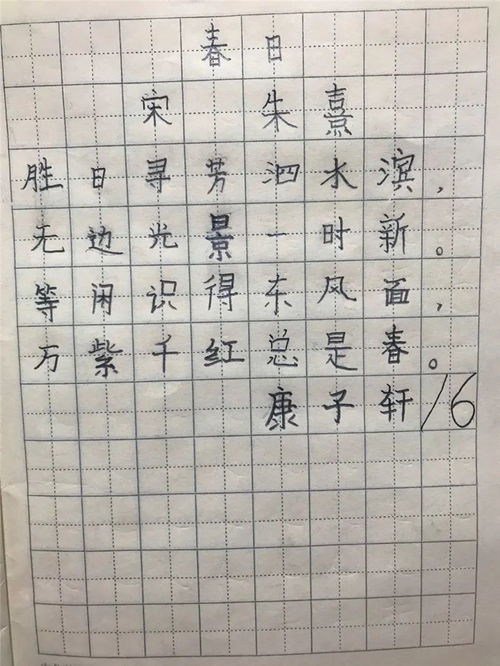 春日
宋 朱熹
胜日寻芳泗水滨，
无边光景一时新。
等闲识得东风面，
万紫千红总是春。
康子轩16